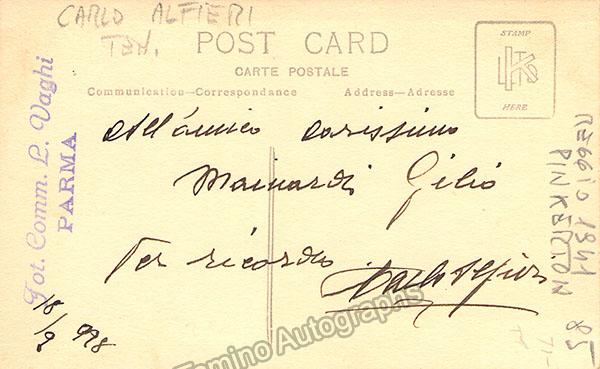 CARLO ALFIERI
TEN.
POST CARD
CARTE POSTALE
Communication—Correspondance
Address—Adresse
STAMP
HERE
Fot. Comm. L. Vaghi
PARMA
All'amico carissimo
Mainardi Gilio
Per ricordo
Carlo Alfieri
18/9 928
REGGIO 1941
PINKERTON
85
Tamino Autographs